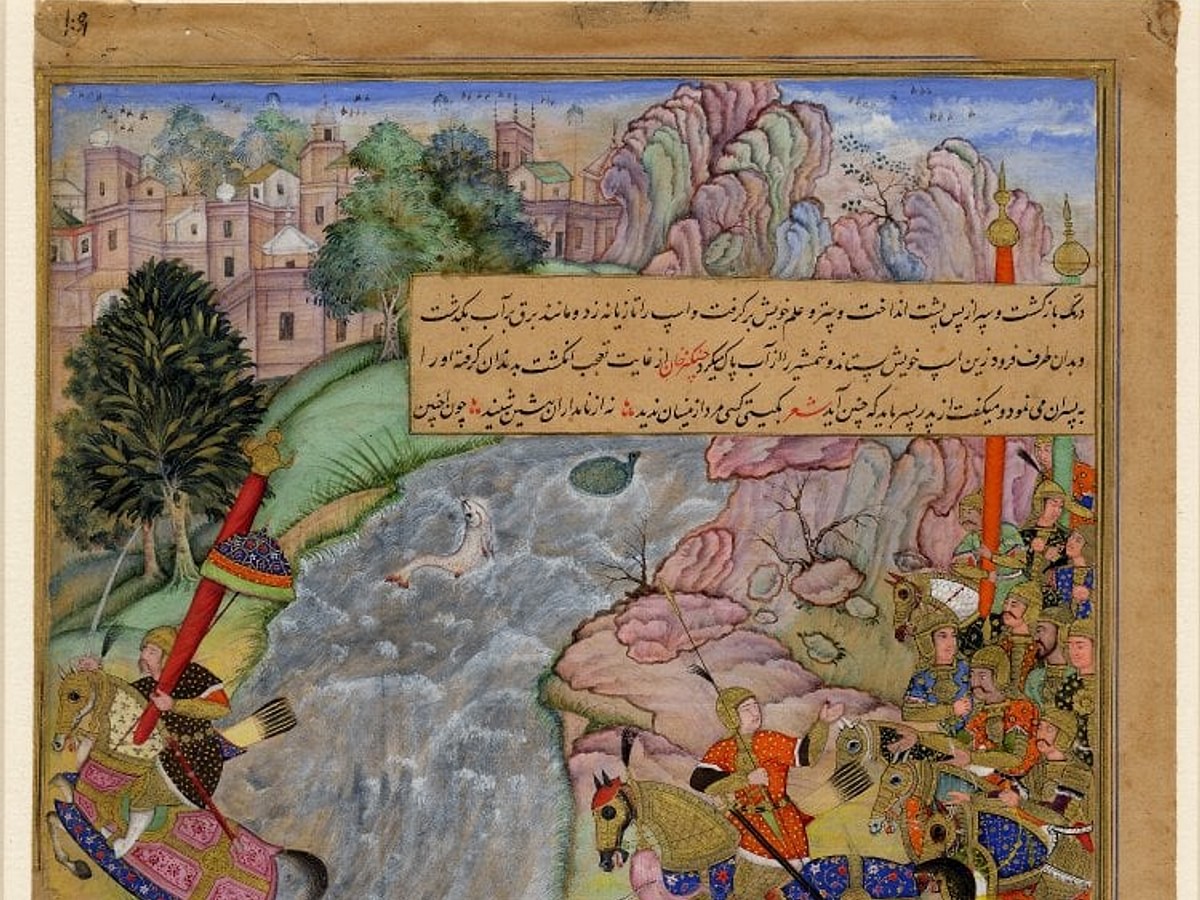 درنگ بازگشت و سپر از پس پشت انداخت و چتر و علم خویش برگرفت و اسپ را تازیانه زد و مانند برق بر آب بگذشت
و بدان طرف فرود زین اسپ خویش بستاند و شمشیر را از آب پاک میکرد چنگیز خان از غایت تعجب انگشت بدندان گرفته اورا
به پسران می نمود و میگفت از پدر پسر باید که چنین آید شعر بگیتی کسی مرد ازینسان ندید نه از نامداران پیشین شنید چون